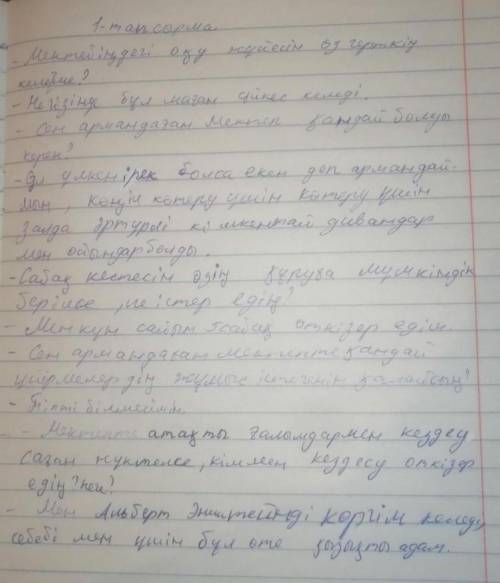 1-тапсырма.
- Мектебіңдегі оқу жүйесін өзгерткің
келеме?
- Негізінң бұл маған үйнес келеді.
- Сен армандаған мектеп қандай болуы
керек?
- Ол үлкенірек болса екен деп армандай-
мын, көңіл көтеру үшін көтеру үшін
залда әртүрлі кішкентай дивандар
мен ойындар болды.
- Сабақ кестесін өзің құруға мүмкіндік
берілсе, не істер едің?
- Мен күн сайын 1 сабақ өткізер едім.
- Сен армандаған мектепте қандай
үйірмелердің жұмыс істегенін қалайсың?
- Тіпті білмеймін.
- Мектепте атақты ғалымдармен кездесу
саған жүктелсе, кіммен кездесу өткізер
едің? Неге?
- Мен Альберт Эйнштейнді көргім келеді,
себебі мен үшін бұл өте қызықты адам.